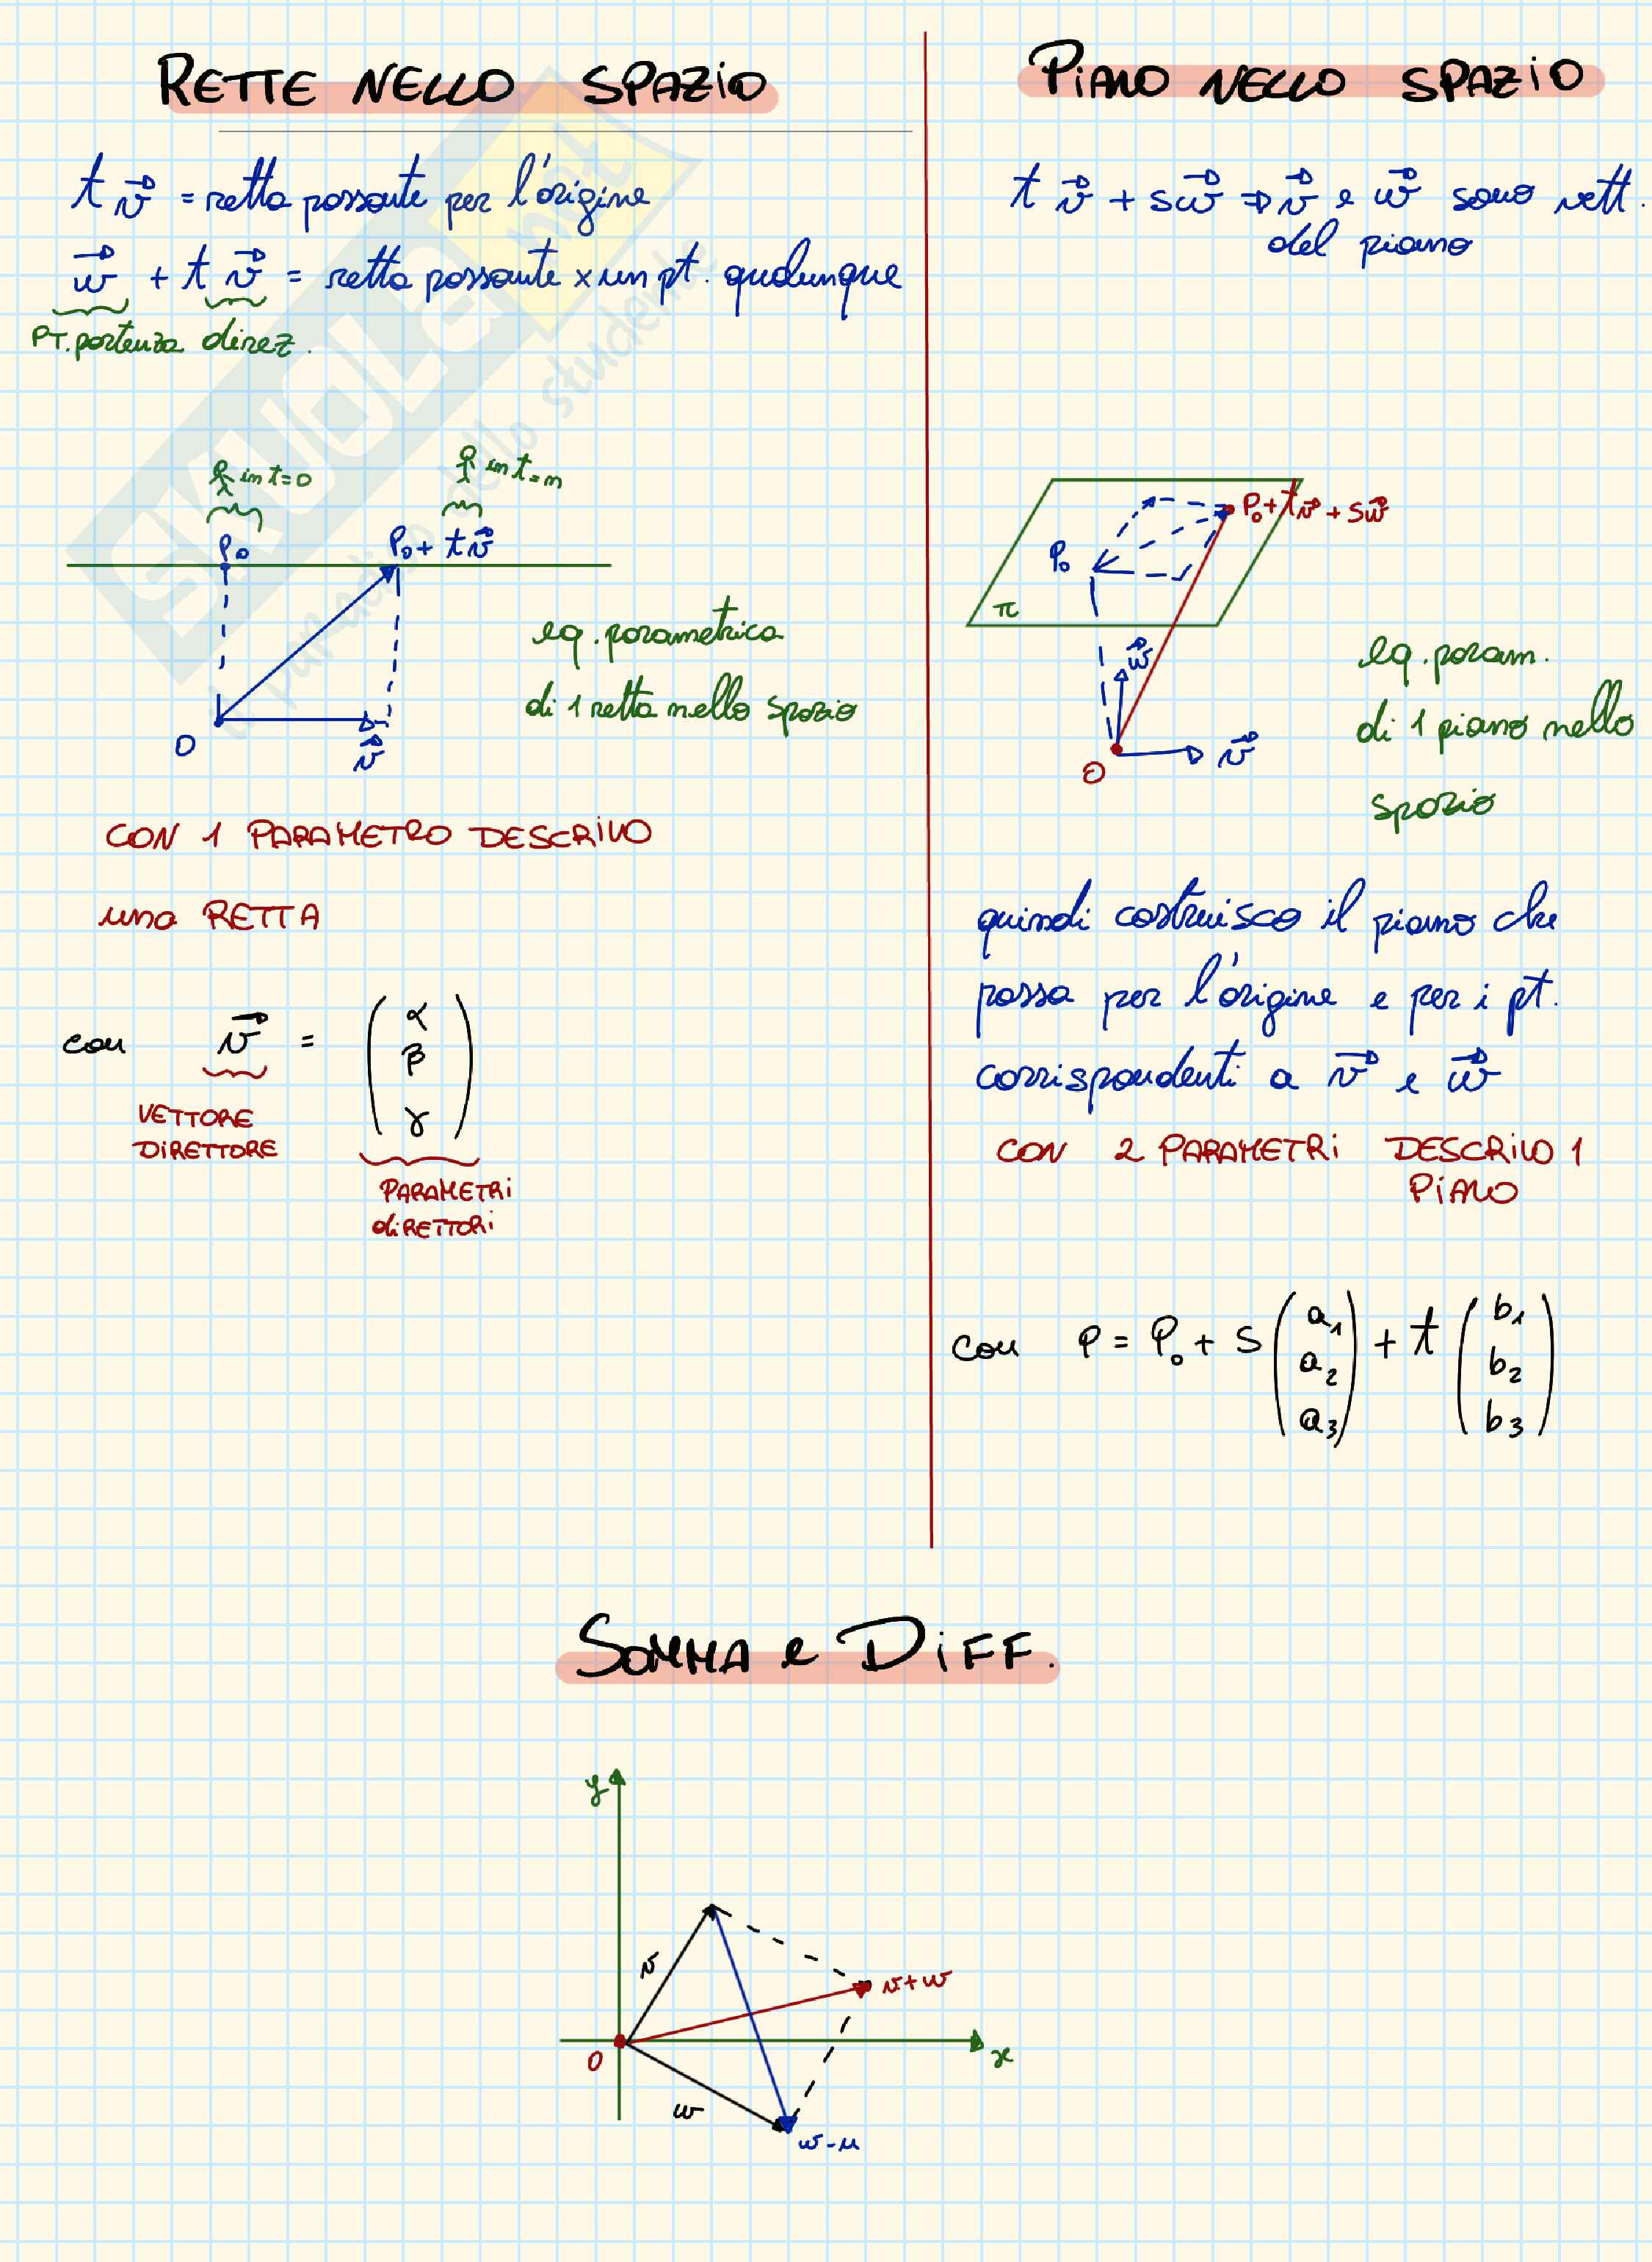 RETTE NELLO SPAZIO
t v⃗ = retta passante per l'origine
w⃗ + t v⃗ = retta passante x un pt. qualunque
PT. partenza direz.
in t=0
in t=n
P₀
P₀ + t v⃗
O
v⃗
eq. parametrica
di 1 retta nello spazio
CON 1 PARAMETRO DESCRIVO
una RETTA
con v⃗ = (α β γ)
VETTORE
DIRETTORE
PARAMETRI
DIRETTORI
PIANO NELLO SPAZIO
t v⃗ + s w⃗ ⇒ v⃗ e w⃗ sono vett.
del piano
P₀ + t v⃗ + s w⃗
P₀
π
w⃗
v⃗
O
eq. param.
di 1 piano nello
spazio
quindi costruisco il piano che
passa per l'origine e per i pt.
corrispondenti a v⃗ e w⃗
CON 2 PARAMETRI DESCRIVO 1
PIANO
con P = P₀ + s (a₁ a₂ a₃) + t (b₁ b₂ b₃)
SOMMA e DIFF.
y
v
v+w
O
x
w
w-u
SKUOLA.net
il paradiso dello studente